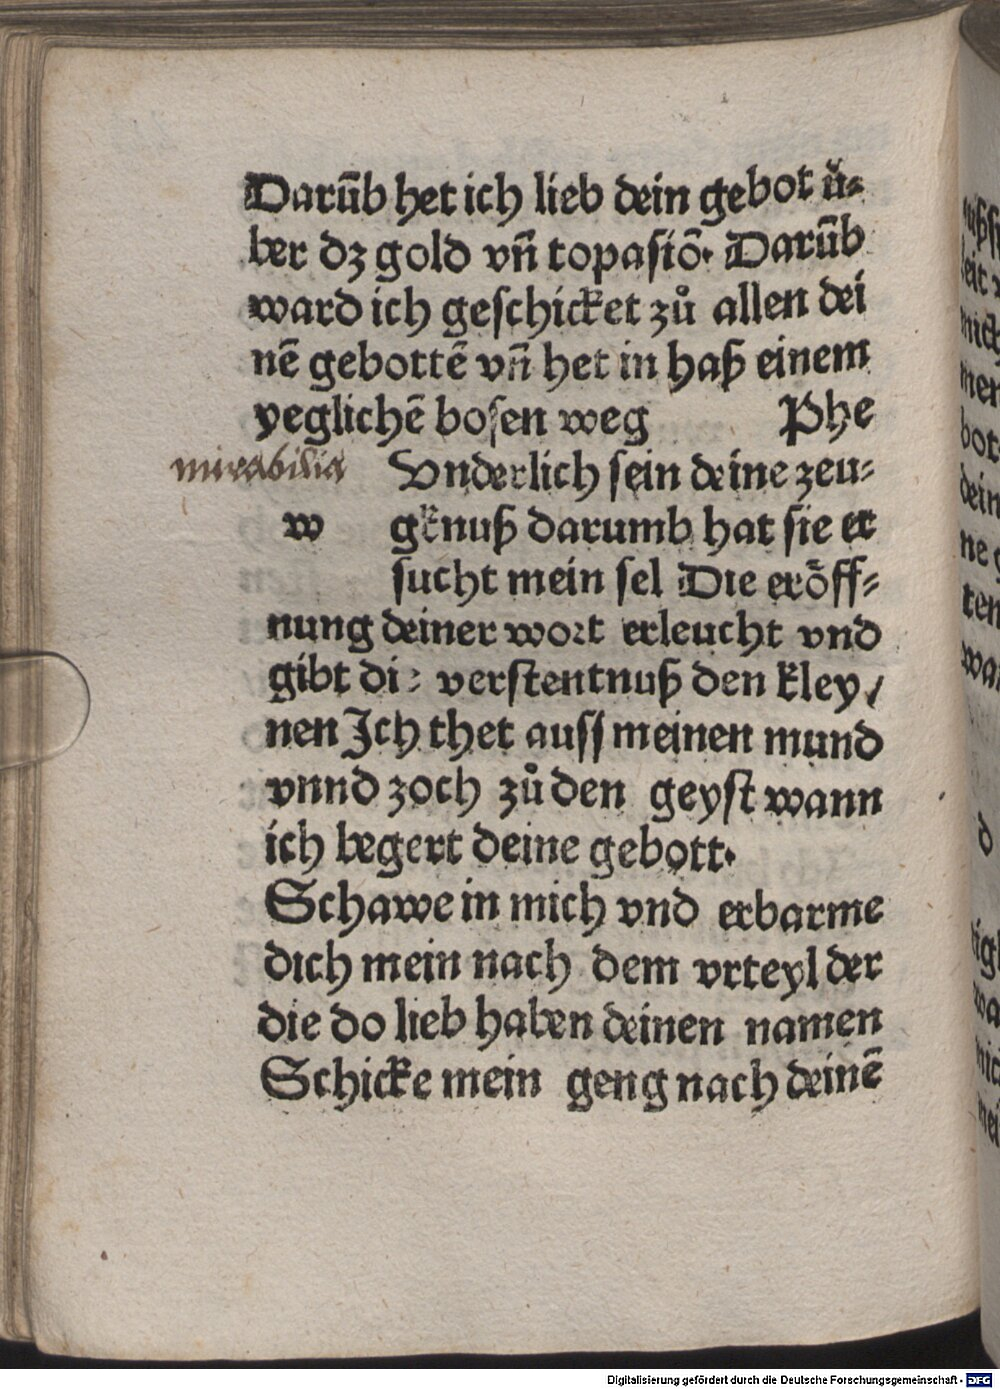 Darūb het ich lieb dein gebot ü⸗
ber dz gold vn̄ topasiō. Darūb
ward ich geschicket zů allen dei
nē gebottē vn̄ het in haß einem
yeglichē bosen weg Phe
mirabilia Vnderlich sein deine zeu⸗
w gknuß darumb hat sie er
sucht mein sel Die eröff⸗
nung deiner wort erleucht vnd
gibt di⸗ verstentnuß den kley/
nen Jch thet auss meinen mund
vnnd zoch zů den geyst wann
ich begert deine gebott.
Schawe in mich vnd erbarme
dich mein nach dem vrteyl der
die do lieb haben deinen namen
Schicke mein geng nach deinē
Digitalisierung gefördert durch die Deutsche Forschungsgemeinschaft - DFG